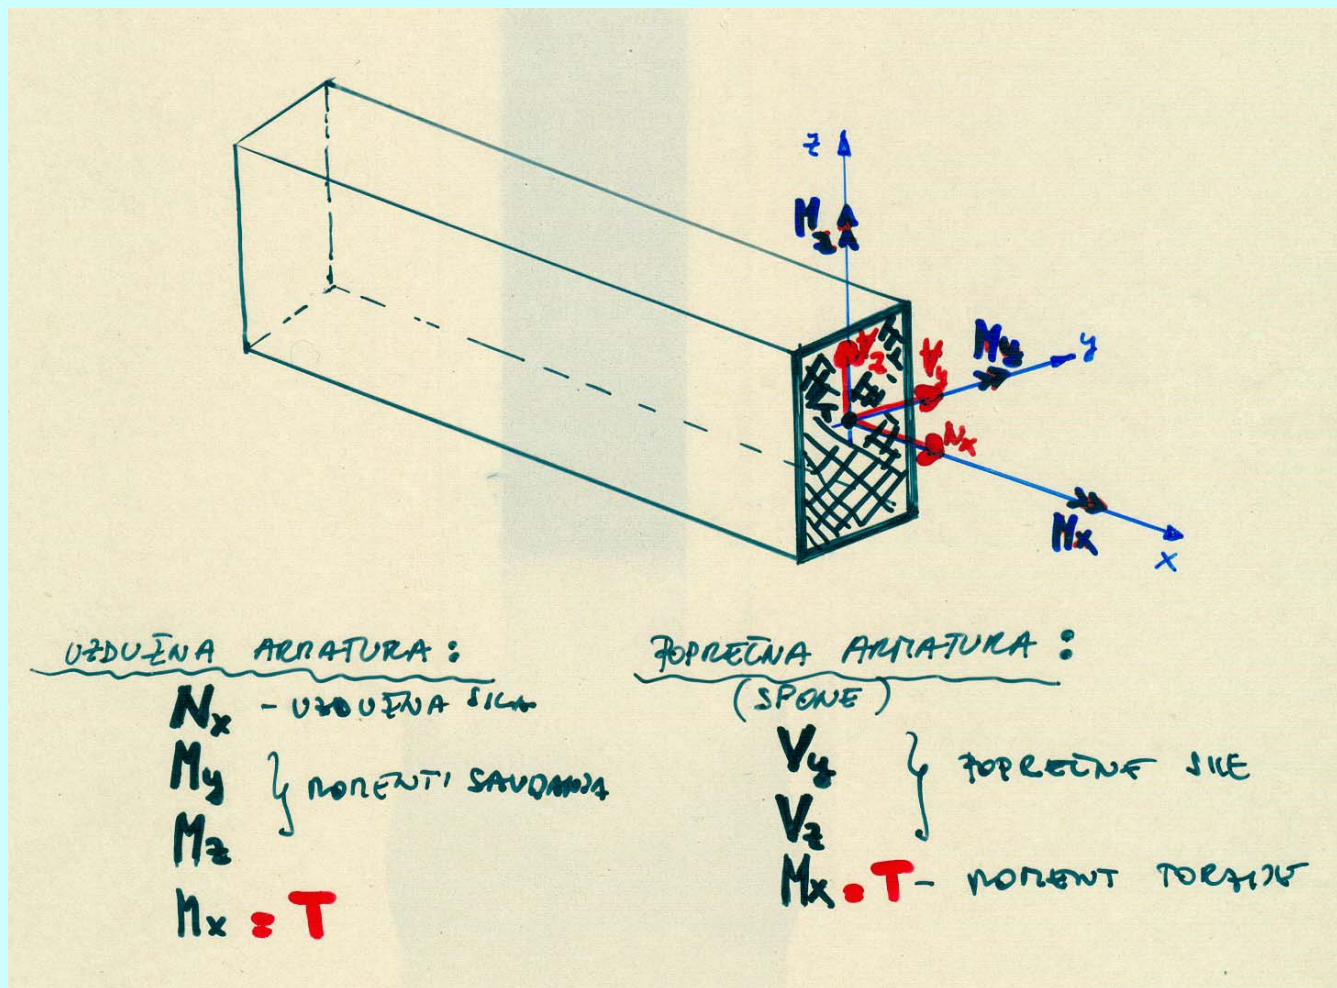 z
Mz
Vz
Vy
My
y
Nx
Mx
x
UZDUŽNA ARMATURA:
Nx - UZDUŽNA SILA
My
Mz
} MOMENTI SAVIJANJA
Mx = T
POPREČNA ARMATURA:
(SPONE)
Vy
Vz
} POPREČNE SILE
Mx = T - MOMENT TORZIJE